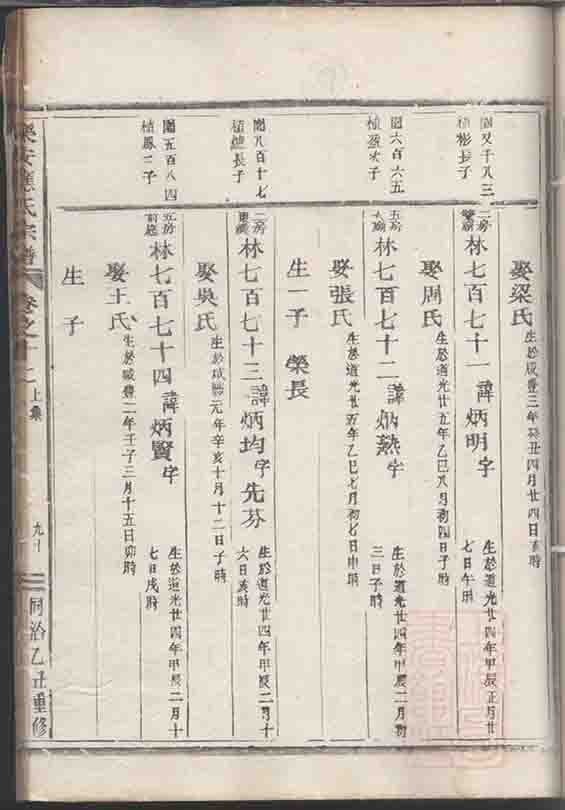 娶梁氏 生於咸豐三年癸丑四月廿四日亥時
圖又千八三
植彬長子
二房
林七百七十一諱炳明字 生於道光廿四年甲辰正月廿
七日午時
娶周氏 生於道光廿五年乙巳八月初四日子時
圖六百六五
植盈次子
五房
林七百七十二諱炳熱字 生於道光廿四年甲辰二月初
三日子時
娶張氏 生於道光廿五年乙巳七月初七日申時
生一子 榮長
圖八百十七
長子
二房
林七百七十三諱炳均字先芬 生於道光廿四年甲辰二月十
六日亥時
娶吳氏 生於咸豐元年辛亥十月十二日子時
圖五百八四
植鳳二子
五房
前庭
林七百七十四諱炳賢字 生於道光廿四年甲辰二月十
七日戌時
娶王氏 生於咸豐二年壬子三月十五日卯時
生 子
樂安應氏宗譜 卷之十二上集 九十 同治乙丑重修